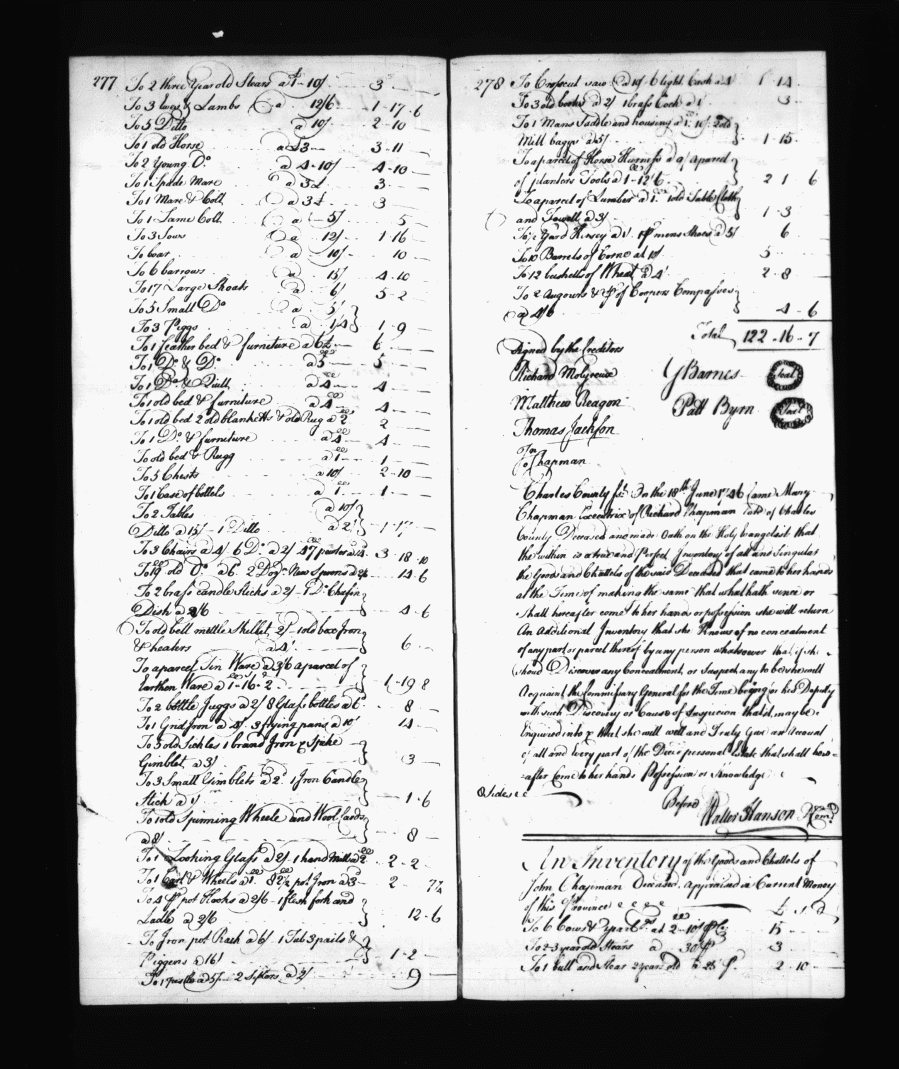 277
To 2 three Year old Stears a 1 - 10/ 3 - -
To 3 ews & Lambs a 12/6 1 - 17 - 6
To 5 Ditto a 10/ 2 - 10
To 1 old Horse a £3 - 3 - 11 -
To 2 Young Do a 4 - 10/ 4 - 10
To 1 Spade Mare a 3£ 3 -
To 1 Mare & Colt a 3£ 3
To 1 Lame Colt a 5/ 5
To 3 Sows a 12/ 1 - 16
To boar a 10/ 10
To 6 barrows a 15/ 4 - 10
To 17 Large Shoats a 6/ 5 - 2
To 5 Small Do a 5/
To 3 Piggs a 1/4 1 - 9
To 1 feather bed & furneture a 6£ 6
To 1 Do & Do a 5 5
To 1 Do & Quilt a 4 4
To 1 old bed & furneture a 4 4
To 1 old bed 2 old blanketts & old Rug a 2 2
To 1 Do & furneture a 4 4
To old bed & Rugg a 1 1
To 5 Chests a 10/ 2 - 10
To 1 Case of bottels a 1 1
To 2 Tables a 10/
Ditto a 15/ - 1 Ditto a 2/ 1 - 17
To 3 Chairs a 4/ 6 Do a 2/ 47 pewter a 3 - 18 - 10
To 19 old Do a 6 2 Doz New Spoons a 14 - 6
To 2 brass candle sticks a 2/ - 1 Do Chafin
Dish a 2/6 4 - 6
To old bell mettle Skellet 2/ - 1 old box Iron
& heaters a 4/ 6
To a parcel Tin Ware a 3/6 a parcel of
Earthen Ware a 1 - 16 - 2 1 - 19 8
To 2 bottle Juggs a 2/ 8 Glass bottles a 6 8
To 1 Grid Iron a 4/ 3 frying pans a 10/ 14
To 5 old Sickles 1 brand Iron & Spike
Gimblet a 3/ 3
To 3 Small Gimblets a 2 1 Iron Candle
Stick a 1/ 1 - 6
To 1 old Spinning Wheele and Wool Cards
a 8/ 8
To 1 Looking Glass a 2/ 1 hand Mill a 2 2 - 2
To 1 Cart & Wheels a 1 82½ pot Iron a 3 2 - 7½
To 4 pr pot Hooks a 2/6 - 1 flesh fork and
Ladle a 2/6 12 - 6
To Iron pot Rack a 6/ 1 Tub 3 pails &
Piggens a 16/ 1 - 2
To 1 pestle a 5/ - 2 Sifters a 2/ 9
278
To Crosscut saw a 10/ 6 light Cash a 4 1 - 14
To 3 old books a 2/ 1 brass Cock a 1 3
To 1 Mans Saddle and housing a 1 - 10/ 2 old
Mill baggs a 5/ 1 - 15
To a parcel of Horse Harness a 9/ a parcel
of planters Tools a 1 - 12 6 2 1 6
To a parcel of Lumber a 1 1 old Table Cloth
and Towell a 3/ 1 - 3
To ½ Yard Kersey a 1 1 pr mens Shoes a 5/ 6
To 10 Barrels of Corne at 10/ 5
To 12 bushells of Wheat a 4 2 - 8
To 2 Augours & pr of Coopers Compasses
a 4/6 4 - 6
Total 122 - 16 - 7
Signed by the Creditors
Richard Molyneux G Barnes Seal
Matthew Reagon Patt Byrn Seal
Thomas Jackson
Chapman
Charles County Sst. On the 18th June 1746 Came Mary
Chapman Executrix of Richard Chapman late of Charles
County Deceased and made Oath on the Holy Evangelist that
the within is a true and Perfect Inventory of all and Singular
the Goods and Chattels of the said Deceased that came to her hands
at the Time of making the same that what hath since or
Shall hereafter come to her hands or possession she will return
An Additional Inventory that she Knows of no concealment
of any part or parcel thereof by any person whatsoever that if she
shoud Discover any Concealment or Suspect any to be she will
Acquaint the Commissary General for the Time being or his Deputy
with such Discovery or Cause of Suspicion that it may be
Enquired into & that she will well and Truly Give an Account
of all and every part of the Dec'd personal Estate that shall here=
=after Come to her hands Possession or Knowledge
Before
Walter Hanson
An Inventory of the Goods and Chattels of
John Chapman Deceased Appraised in Current Money
of this Province £ s d
To 6 Cows & Yearlgs at 2 - 10/ 15
To 2 3 year old Stears a 30/ pr 3
To 1 bull and Stear 2 years old a 25 pr 2 - 10